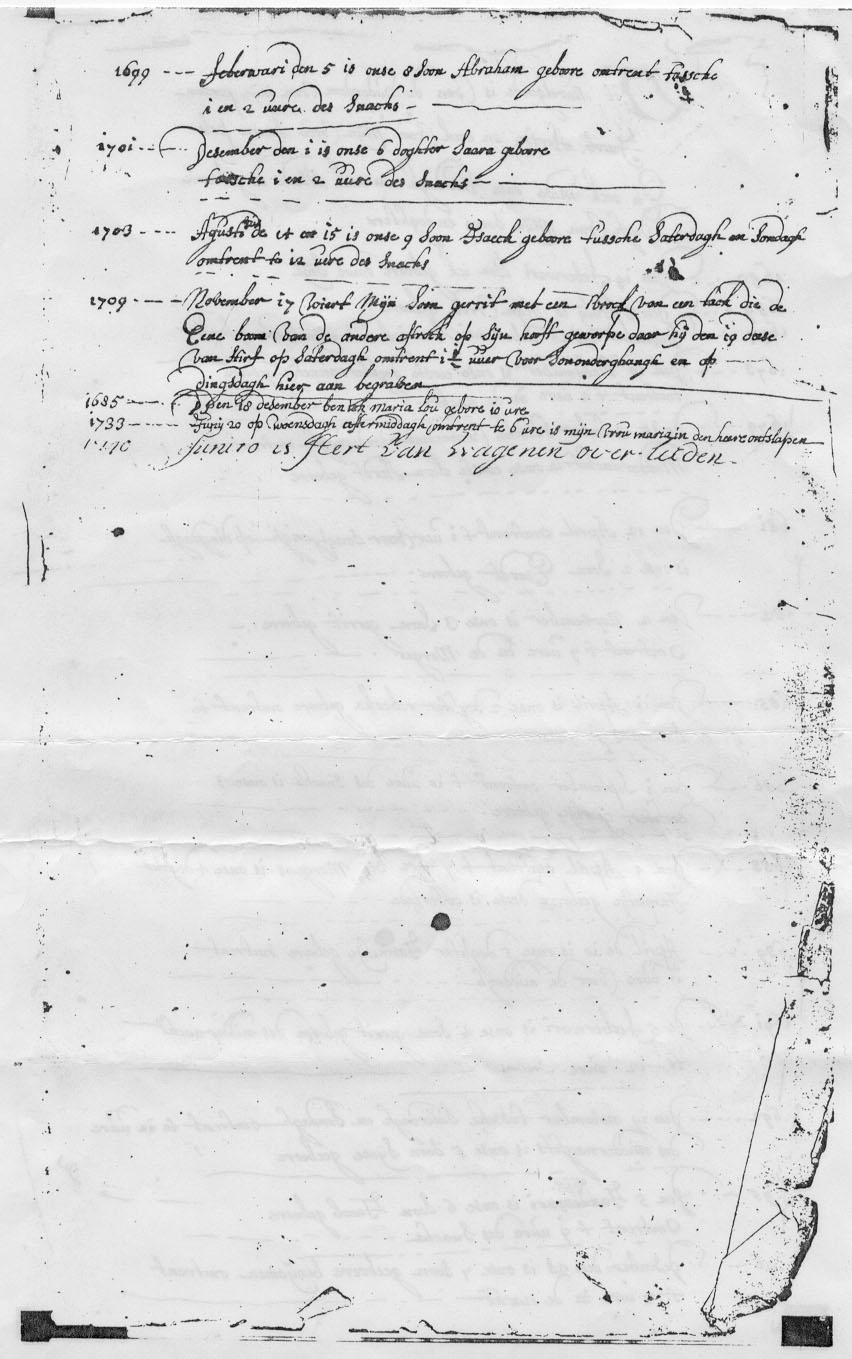 1699 --- feberwari den 5 is onse 8 Soon Abraham geboore omtrent tussche
i en 2 uure des Snachs
1701 --- Desember den i is onse 6 doghter Saara geboore
tussche i en 2 uure des Snachs
1703 ---- Agusti de 14 en 15 is onse 9 Soon Ysaeck geboore tussche Saterdagh en Sondagh
omtrent te 12 uere des Snachs
1709 ---- November 17 wiert Mijn Soon gerrit met een brock van een tack die de
Eene boom van de andere op Sijn hooft geworpe daar hij den 19 dese
van Stirf op Saterdagh omtrent 1 uuer voor Sononderghangh en op
dingsdagh hier aan begraben
1685 ---- Den 18 desember ben ick maria Lou gebore 10 ure
1733 ---- Junij 20 op woensdagh aftermiddagh omtrent te 6 ure is mijn vrou maria in den heere ontslapen
1740 Juni 10 is Aert Van Wagenen over-leeden.